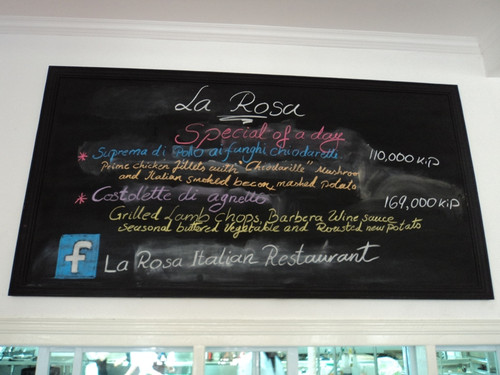 La Rosa
Special of a day
* Suprema di Pollo ai funghi chiodarelle. 110,000 KiP
Prime chicken fillets with "Chiodarille" Mushroom
and Italian smoked bacon, mashed potato
* Costolette di agnello 169,000 KiP
Grilled Lamb chops, Barbera Wine sauce
seasonal buttered Vegetable and Roasted new potato
f La Rosa Italian Restaurant